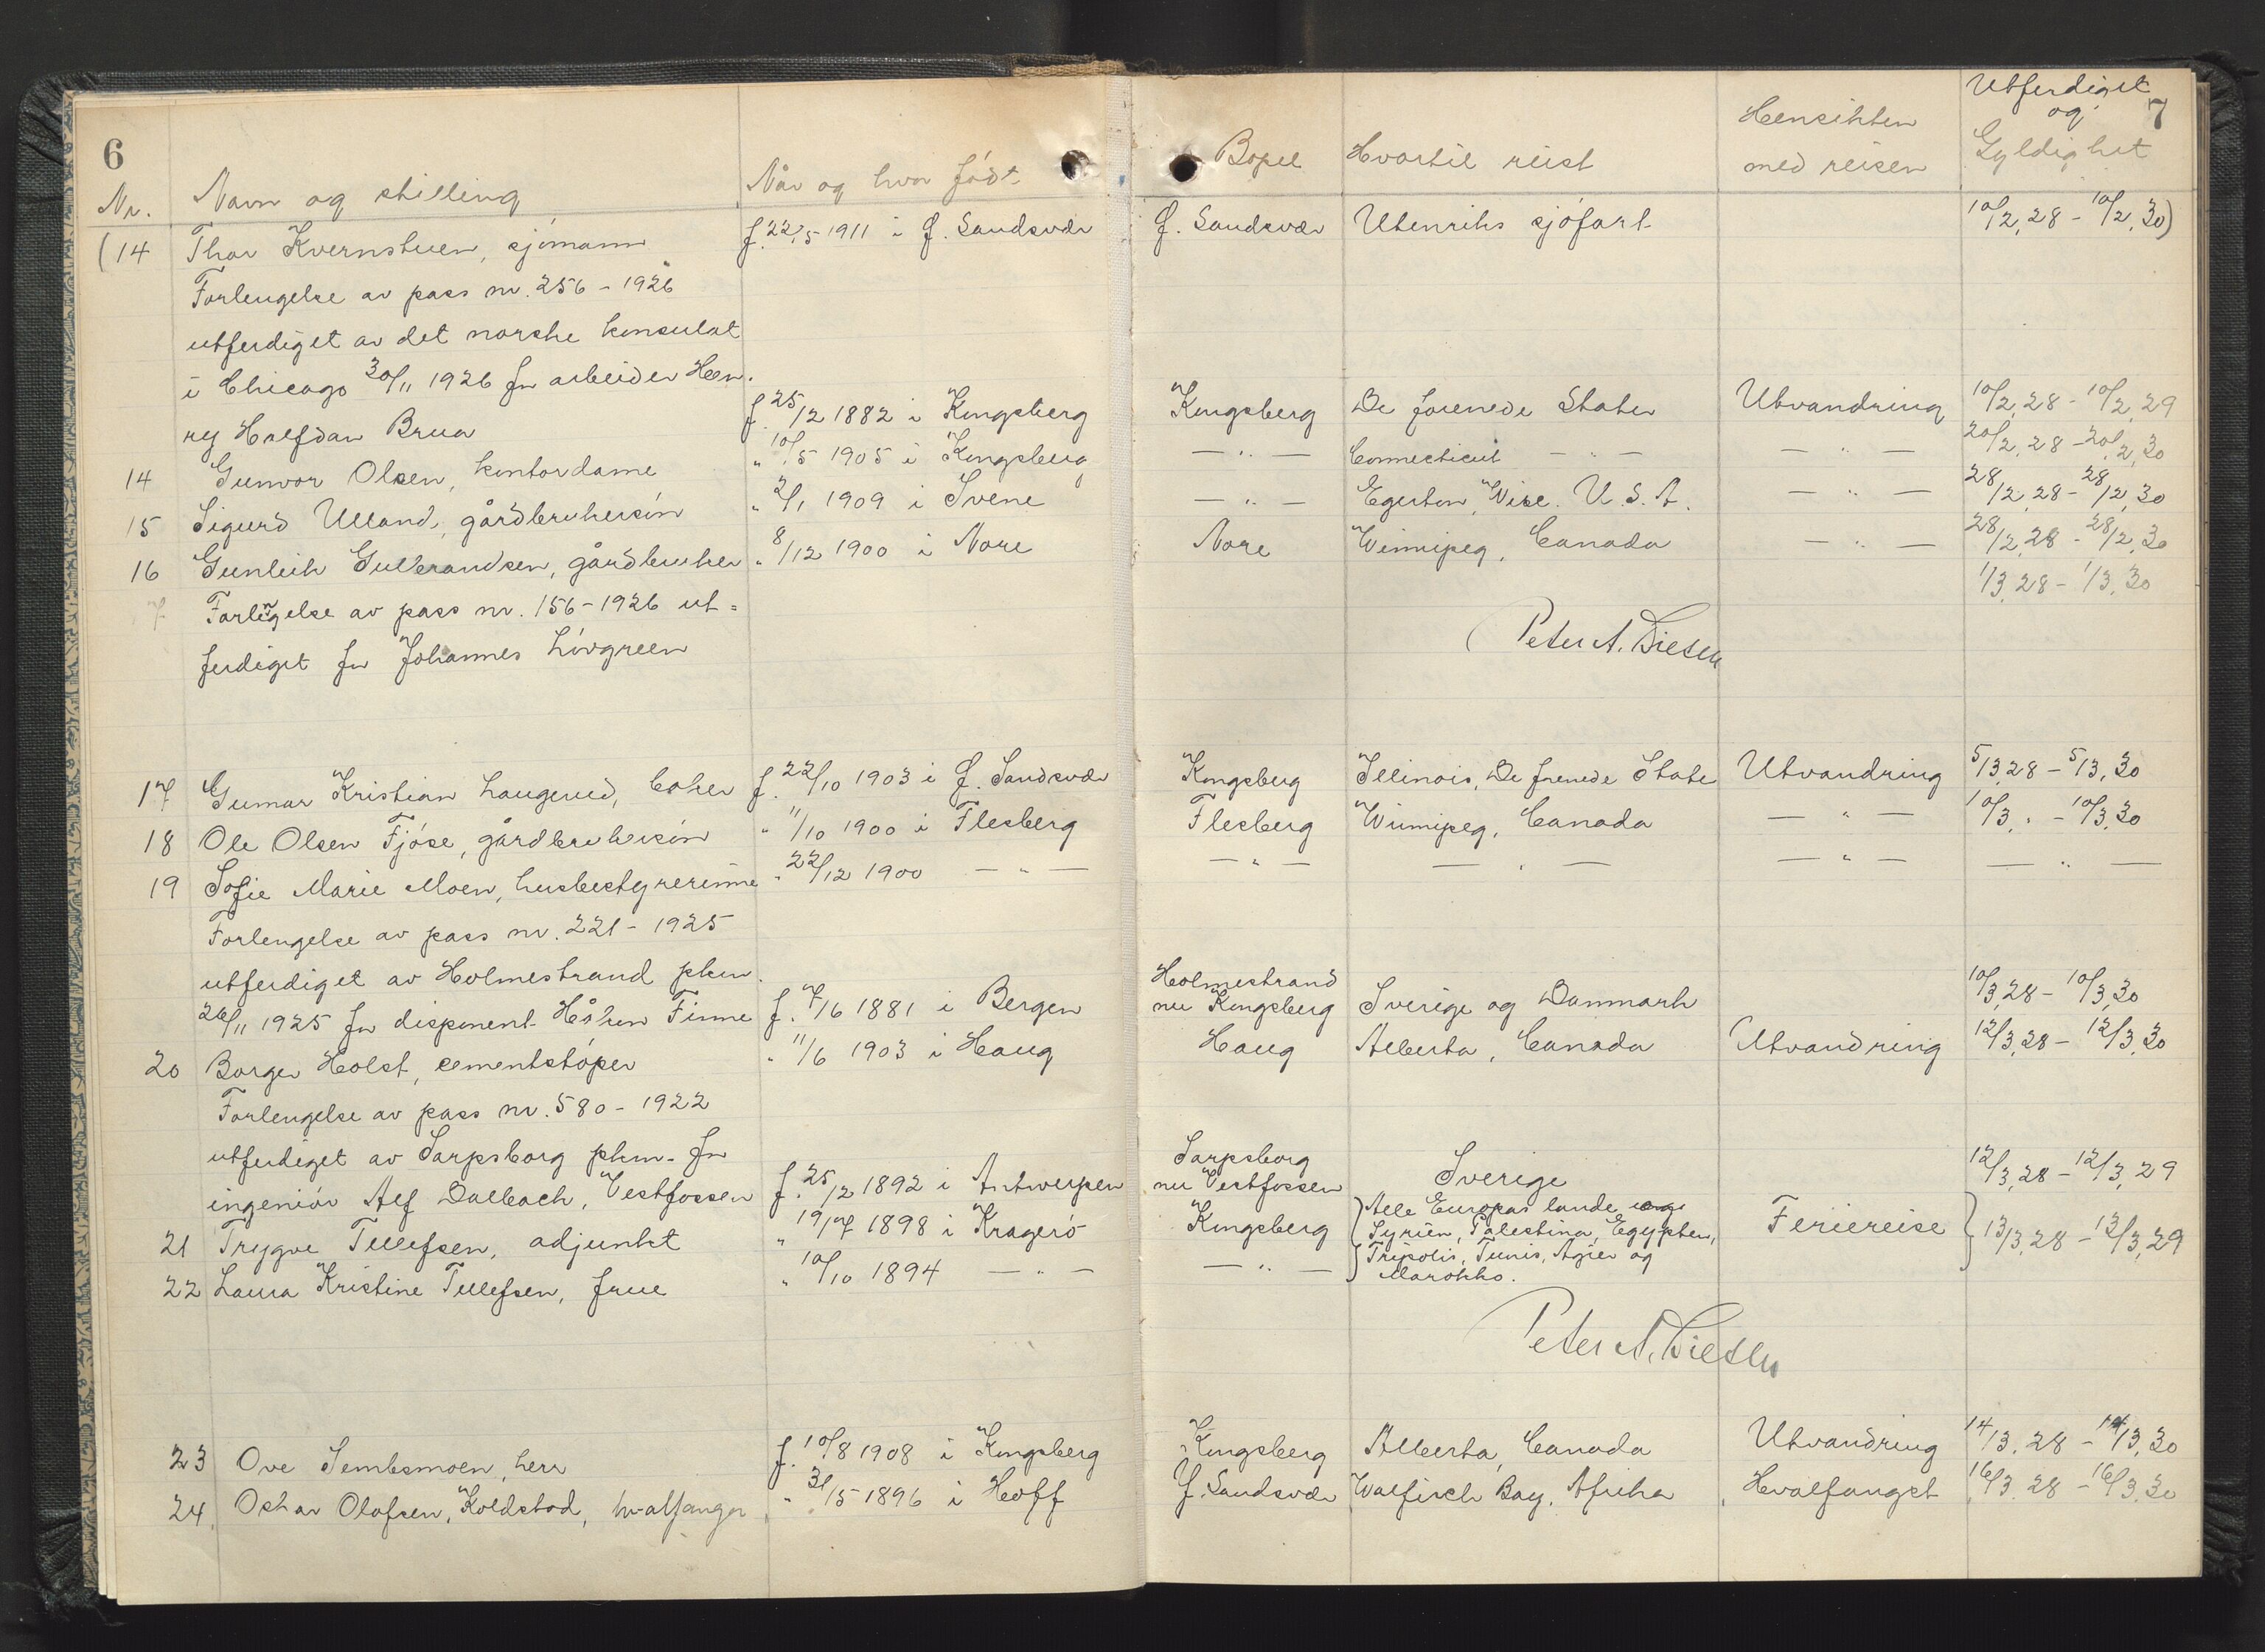 6
Nr. Navn og stilling Når og hvor født
(14 Thor Kvernstuen, sjømann f. 22/5 1911 i Y. Sandsvær
Forlengelse av pass nr. 256 - 1926
utferdiget av det norske konsulat
i Chicago 30/11 1926 for arbeider Hen-
ry Halfdan Brua f. 25/12 1882 i Kongsberg
14 Gunvor Olsen, kontordame " 10/5 1905 i Kongsberg
15 Sigurd Ulland, gårdbrukersøn " 2/1 1909 i Svene
16 Gunleik Gulbrandsen, gårdbruker " 8/12 1900 i Nore
7 Forlengelse av pass nr. 156 - 1926 ut=
ferdiget for Johannes Løvgreen
17 Gunnar Kristian Laugerud, baker f. 22/10 1903 i Y. Sandsvær
18 Ole Olsen Fjøse, gårdbrukersøn " 11/10 1900 i Flesberg
19 Sofie Marie Moen, husbestyrerinne " 22/12 1900 — " —
Forlengelse av pass nr. 221 - 1925
utferdiget av Holmestrand pkm.
26/11 1925 for disponent Håkon Finne f. 7/6 1881 i Bergen
20 Borger Holst, cementstøper " 11/6 1903 i Haug
Forlengelse av pass nr. 580 - 1922
utferdiget av Sarpsborg pkm. for
ingeniør Alf Dalbach, Vestfossen f. 25/12 1892 i Antwerpen
21 Trygve Tellefsen, adjunkt " 19/7 1898 i Kragerø
22 Laura Kristine Tellefsen, frue " 10/10 1894 — " —
23 Ove Sembsmoen, herr f. 10/8 1908 i Kongsberg
24 Oskar Olafsen, Koldstad, hvalfanger " 31/5 1896 i Hoff
7
Bopel Hvortil reist Hensikten med reisen Utferdiget og Gyldighet
Y. Sandsvær Utenriks sjøfart 10/2.28 - 10/2.30)
Kongsberg De forenede Stater Utvandring 10/2.28 - 10/2.29
— " — Connecticut — " — — " — 20/2.28 - 20/2.30
— " — Egerton, Wisc. U.S.A. — " — 28/2.28 - 28/2.30
Nore Winnipeg, Canada — " — 28/2.28 - 28/2.30
1/3.28 - 1/3.30
Peter A.
Kongsberg Illinois, De forenede State Utvandring 5/3.28 - 5/3.30
Flesberg Winnipeg, Canada — " — 10/3. " - 10/3.30
— " — — " — — " — — " —
Holmestrand
nu Kongsberg Sverige og Danmark 10/3.28 - 10/3.30
Haug Alberta, Canada Utvandring 12/3.28 - 12/3.30
Sarpsborg
nu Vestfossen Sverige 12/3.28 - 12/3.29
Kongsberg Alle Europas lande Feriereise 13/3.28 - 13/3.29
Syrien, Palestina, Egypten,
— " — Tripolis, Tunis, Agier og
Marokko.
Peter A.
Kongsberg Alberta, Canada Utvandring 14/3.28 - 14/3.30
Y. Sandsvær Walfisch Bay, Afrika Hvalfangst 16/3.28 - 16/3.30